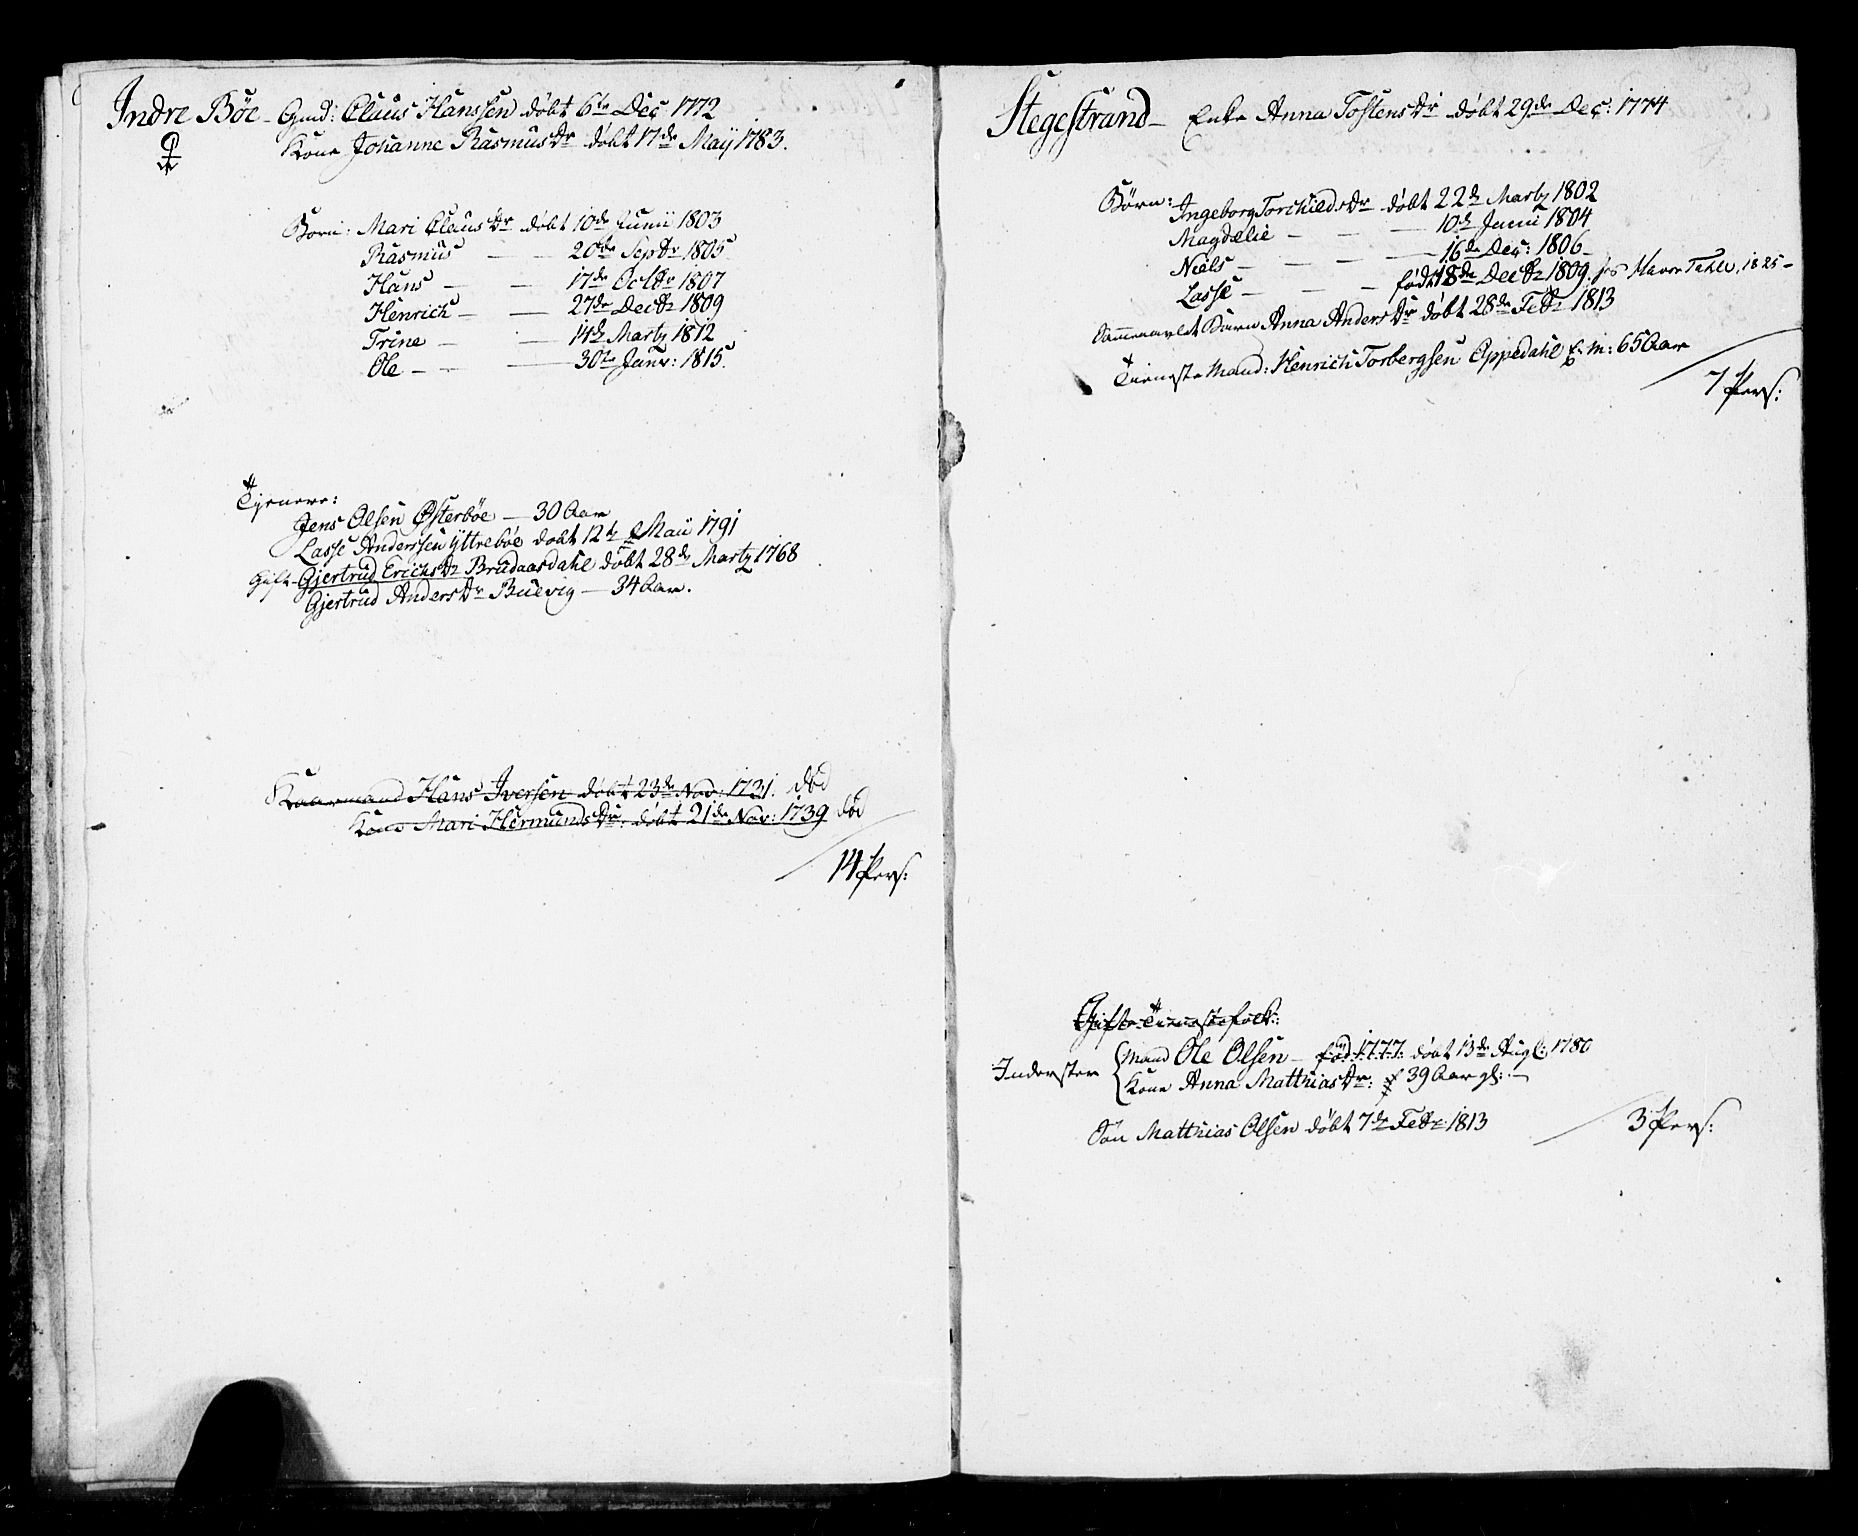 Indre Böe - Gmd: Claus Hanssen döbt 6te Dec 1772
Kone Johanne Rasmusdr döbt 17de Maij 1783.
Börn: Mari Clausdr döbt 10de Junii 1803
Rasmus — — 20de Septbr 1805
Hans — — 17de Octbr 1807
Henrich — — 27de Decbr 1809
Trine — — 14de Martz 1812
Ole — — 30te Janv: 1815.
Tjenere:
Jens Olsen Österböe — 30 Aar
Lasse Anderssen Yttreböe döbt 12te Maii 1791
Gift - Gjertrud Erichsdr Brudaasdahl döbt 28de Martz 1768
Gjertrud Andersdr Buevig — 34 Aar.
Kaarmand Hans Iversen döbt 23de Nov: 1731. död
Kone Mari Hermundsdr: döbt 21de Nov: 1739 död
14 Pers:
Stegestrand - Enke Anna Tostensdr döbt 29de Dec: 1774
Börn: Ingeborg Torchildsdr döbt 22de Martz 1802
Magdelie — — — 10de Junii 1804
Niels — — — — 16de Dec: 1806
Lasse — — — født 18de Decbr 1809. Tahle, 1825 -
Sammenavlet Barn Anna Andersdr döbt 28de Febr 1813
Tieneste Mand: Henrich Torbergsen Oppedahl E: M: 65 Aar
7 Pers:
Gifte Tienestefolk:
Inderster Mand Ole Olsen - född 1777: döbt 13de Aug: 1780
Kone Anna Matthiasdr: 39 Aar gl: —
Sön Matthias Olsen döbt 7de Febr 1813
3 Pers: